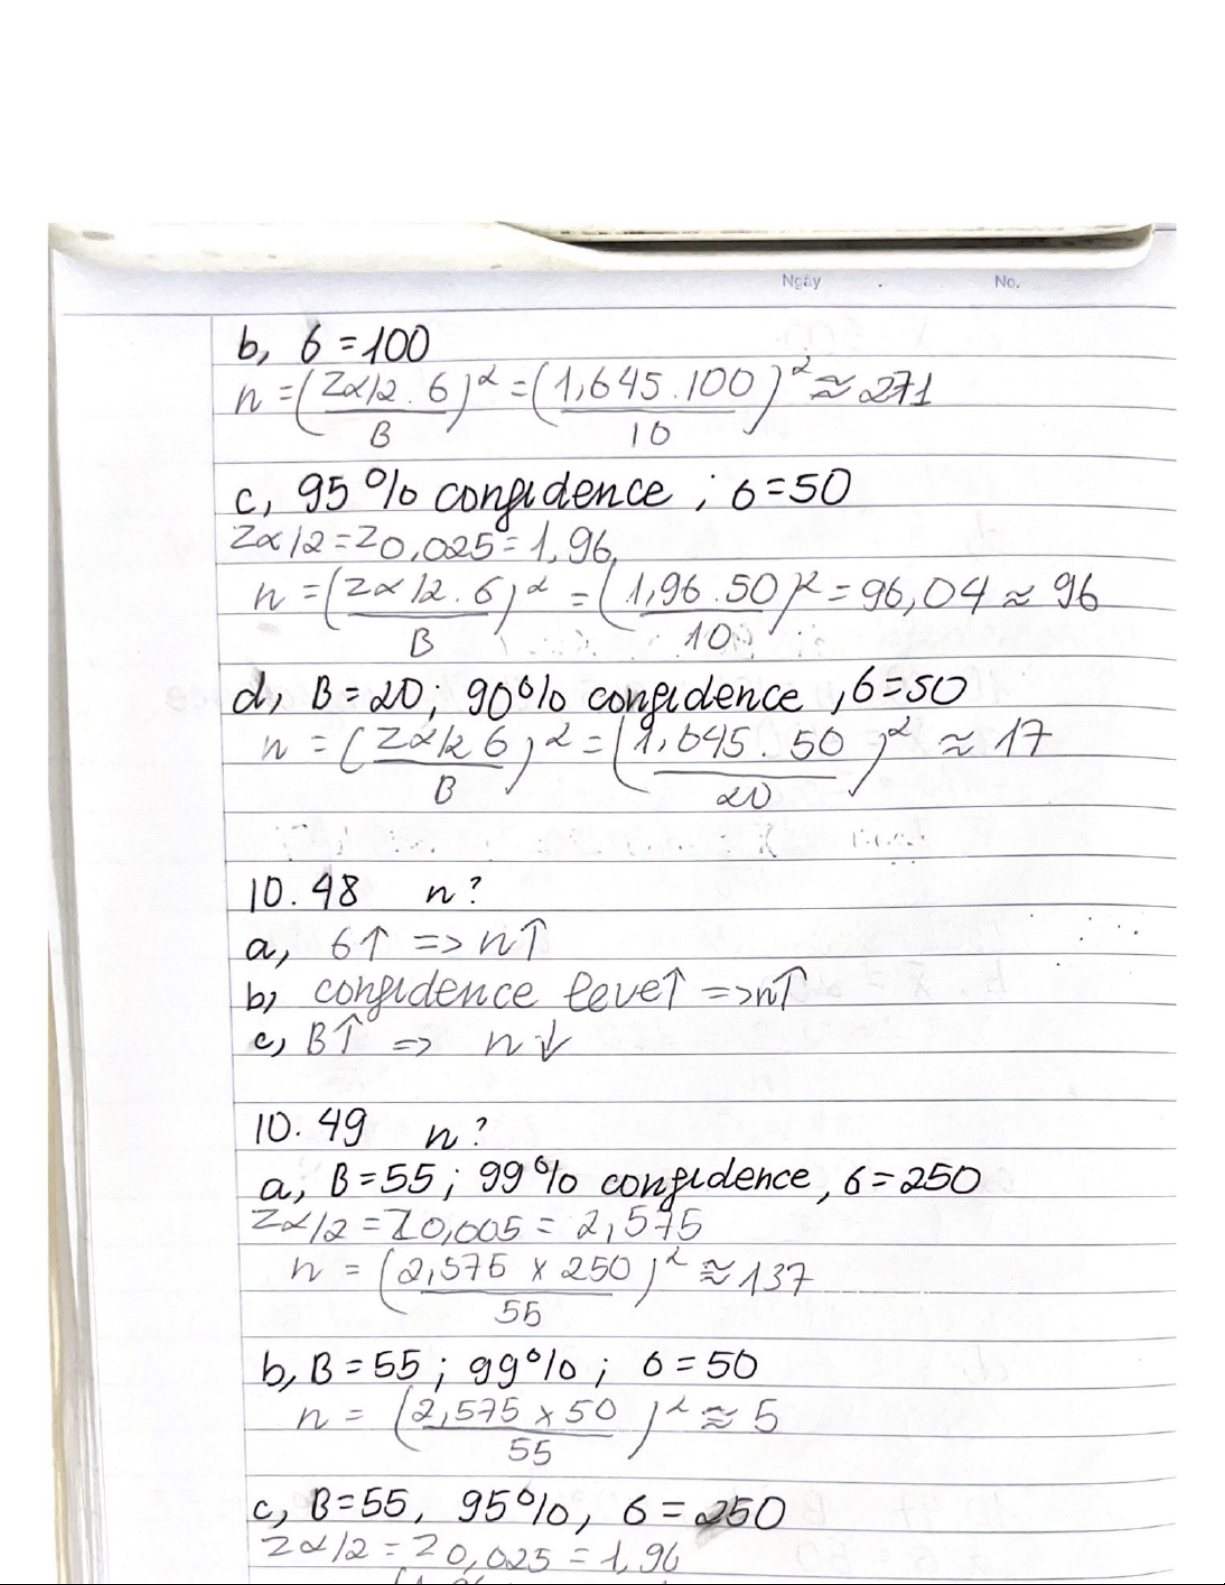 Ngày . No.
b, 6 = 100
n = (Zα/2 . 6 / B)² = (1,645 . 100 / 10)² ≈ 271
c, 95% confidence ; 6 = 50
Zα/2 = Z0,025 = 1,96
n = (Zα/2 . 6 / B)² = (1,96 . 50 / 10)² = 96,04 ≈ 96
d, B = 20; 90% confidence , 6 = 50
n = (Zα/2 6 / B)² = (1,645 . 50 / 20)² ≈ 17
10.48 n?
a, 6↑ => n↑
b, confidence level↑ => n↑
c, B↑ => n↓
10.49 n?
a, B = 55 ; 99% confidence, 6 = 250
Zα/2 = Z0,005 = 2,575
n = (2,575 x 250 / 55)² ≈ 137
b, B = 55 ; 99% ; 6 = 50
n = (2,575 x 50 / 55)² ≈ 5
c, B = 55, 95%, 6 = 250
Zα/2 = Z0,025 = 1,96